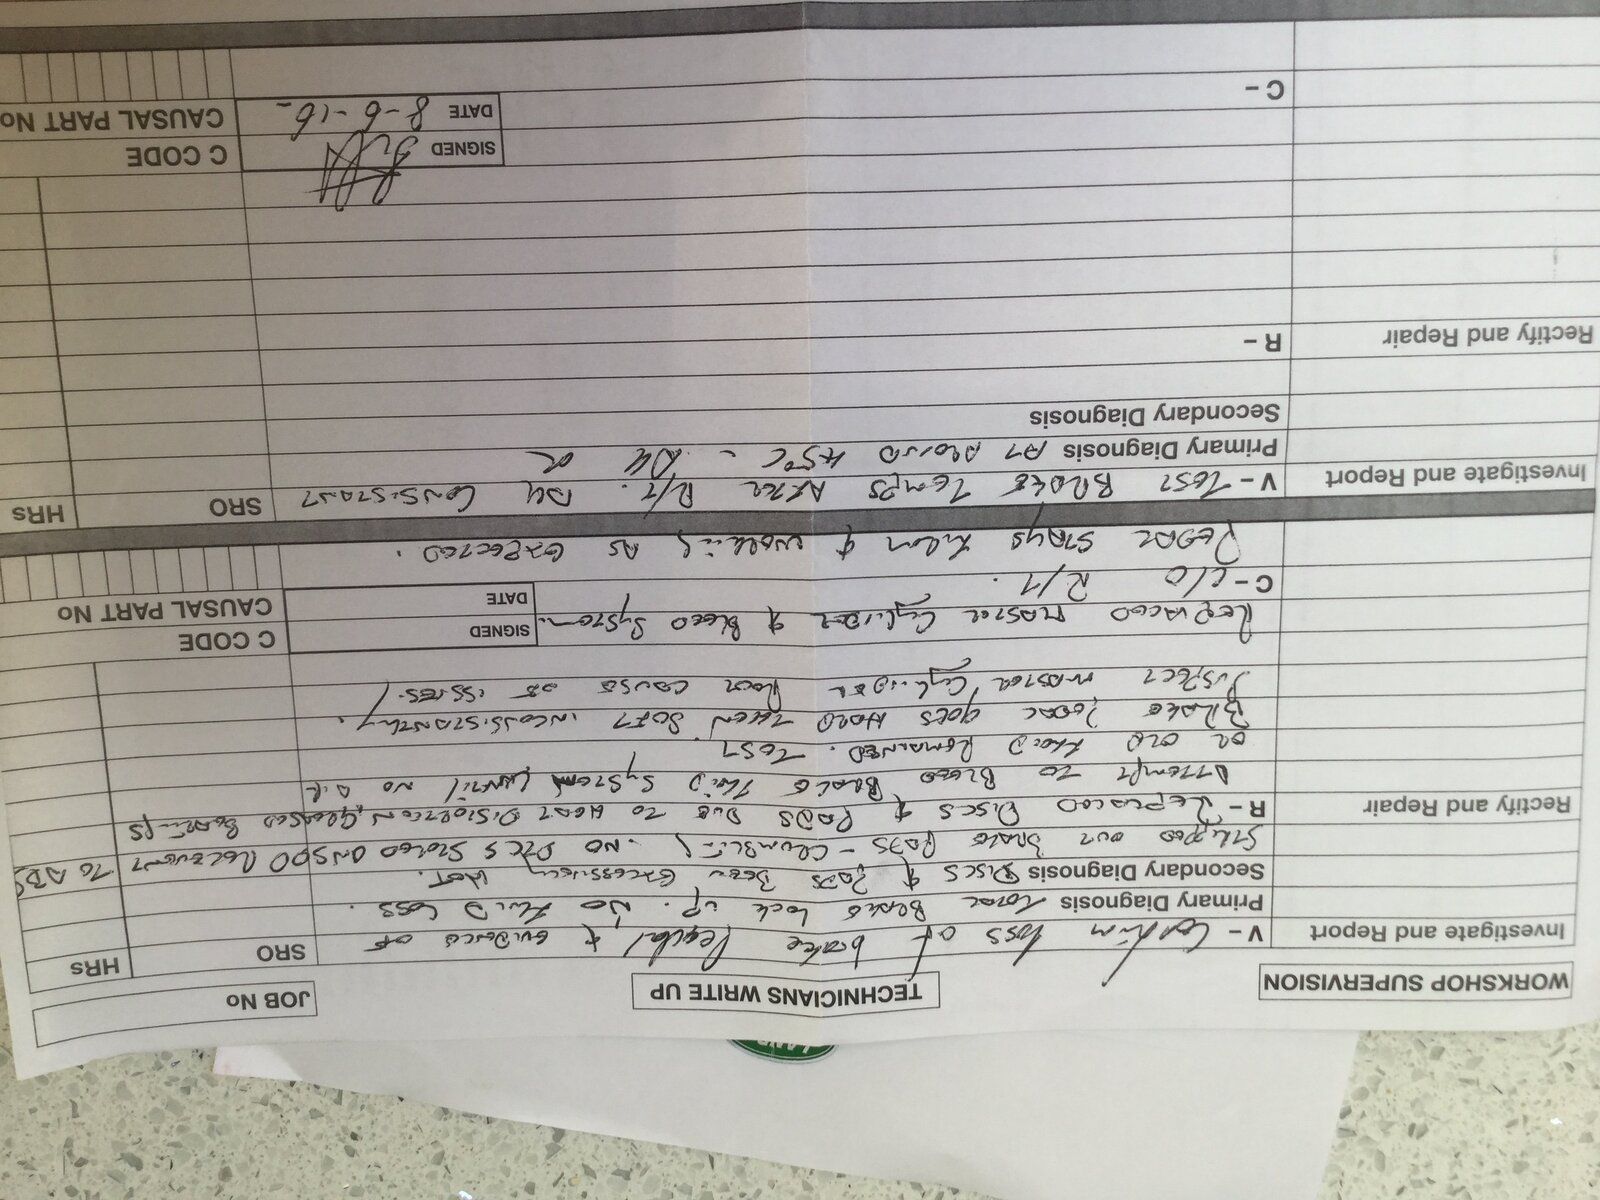 LAND
WORKSHOP SUPERVISION
TECHNICIANS WRITE UP
JOB No
Investigate and Report
V - Confirm loss of brake & evidence of
SRO
HRs
Primary Diagnosis TOTAL BRAKE LOCK UP. NO FLUID LOSS.
Secondary Diagnosis DISCS & PADS BEEN EXCESSIVELY HOT.
STRIPPED OUT BRAKE PADS - CRUMBLING. NO DTCS STORED ON SDD RELEVENT TO ABS
Rectify and Repair
R - REPLACED DISCS & PADS DUE TO HEAT DISTORTION, GREASED
ATTEMPT TO BLEED BRAKE FLUID SYSTEM UNTIL NO AIR
OR OLD FLUID REMAINED. TEST
BRAKE PEDAL GOES HARD THEN SOFT INCONSISTANTLY.
SUSPECT MASTER CYLINDER ROOT CAUSE OF ISSUES.
REPLACED MASTER CYLINDER & BLEED SYSTEM.
SIGNED
C CODE
C - C/O R/T.
DATE
CAUSAL PART No
PEDAL STAYS FIRM & WORKING AS EXPECTED.
Investigate and Report
V - TEST BRAKE TEMPS AFTER R/T. ALL CONSISTANT
SRO
HRs
Primary Diagnosis AT AROUND 45°C - ALL OK
Secondary Diagnosis
Rectify and Repair
R -
SIGNED
C CODE
C -
DATE 8-6-16
CAUSAL PART No